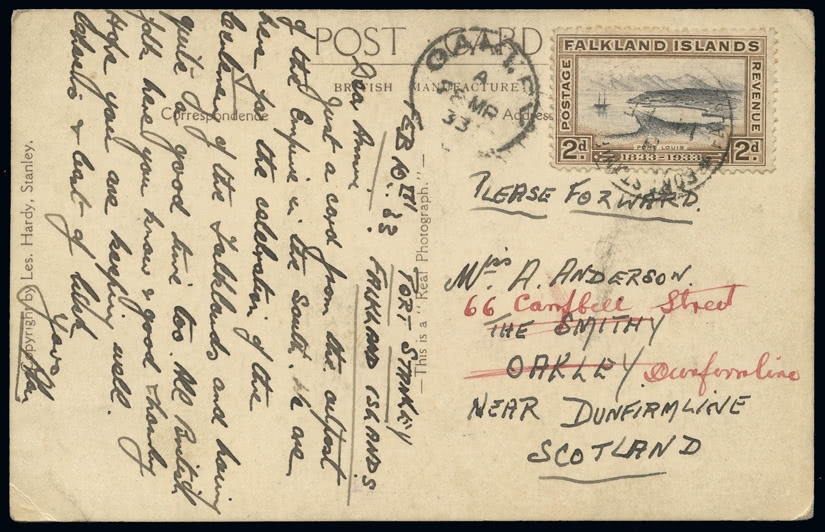 POST CARD
BRITISH MANUFACTURE
Correspondence
Address
FALKLAND ISLANDS
POSTAGE
REVENUE
PORT LOUIS
2d. 1833-1933 2d.
OAKLEY
A
MR
33
PORT STANLEY
FALKLAND ISLANDS
FEB 16TH 33
Dear Annie
Just a card from the outpost
of the Empire in the South. We are
here for the celebration of the
Centenary of the Falklands and having
quite a good time too. All British
folk here you know & good hearty
Hope you are keeping well.
& best of luck
Yours
Copyright by Les. Hardy, Stanley.
—This is a "Real Photograph."—
PLEASE FORWARD.
Mrs A. ANDERSON.
66 Campbell Street
THE SMITHY
OAKLEY Dunfermline
NEAR DUNFIRMLINE
SCOTLAND